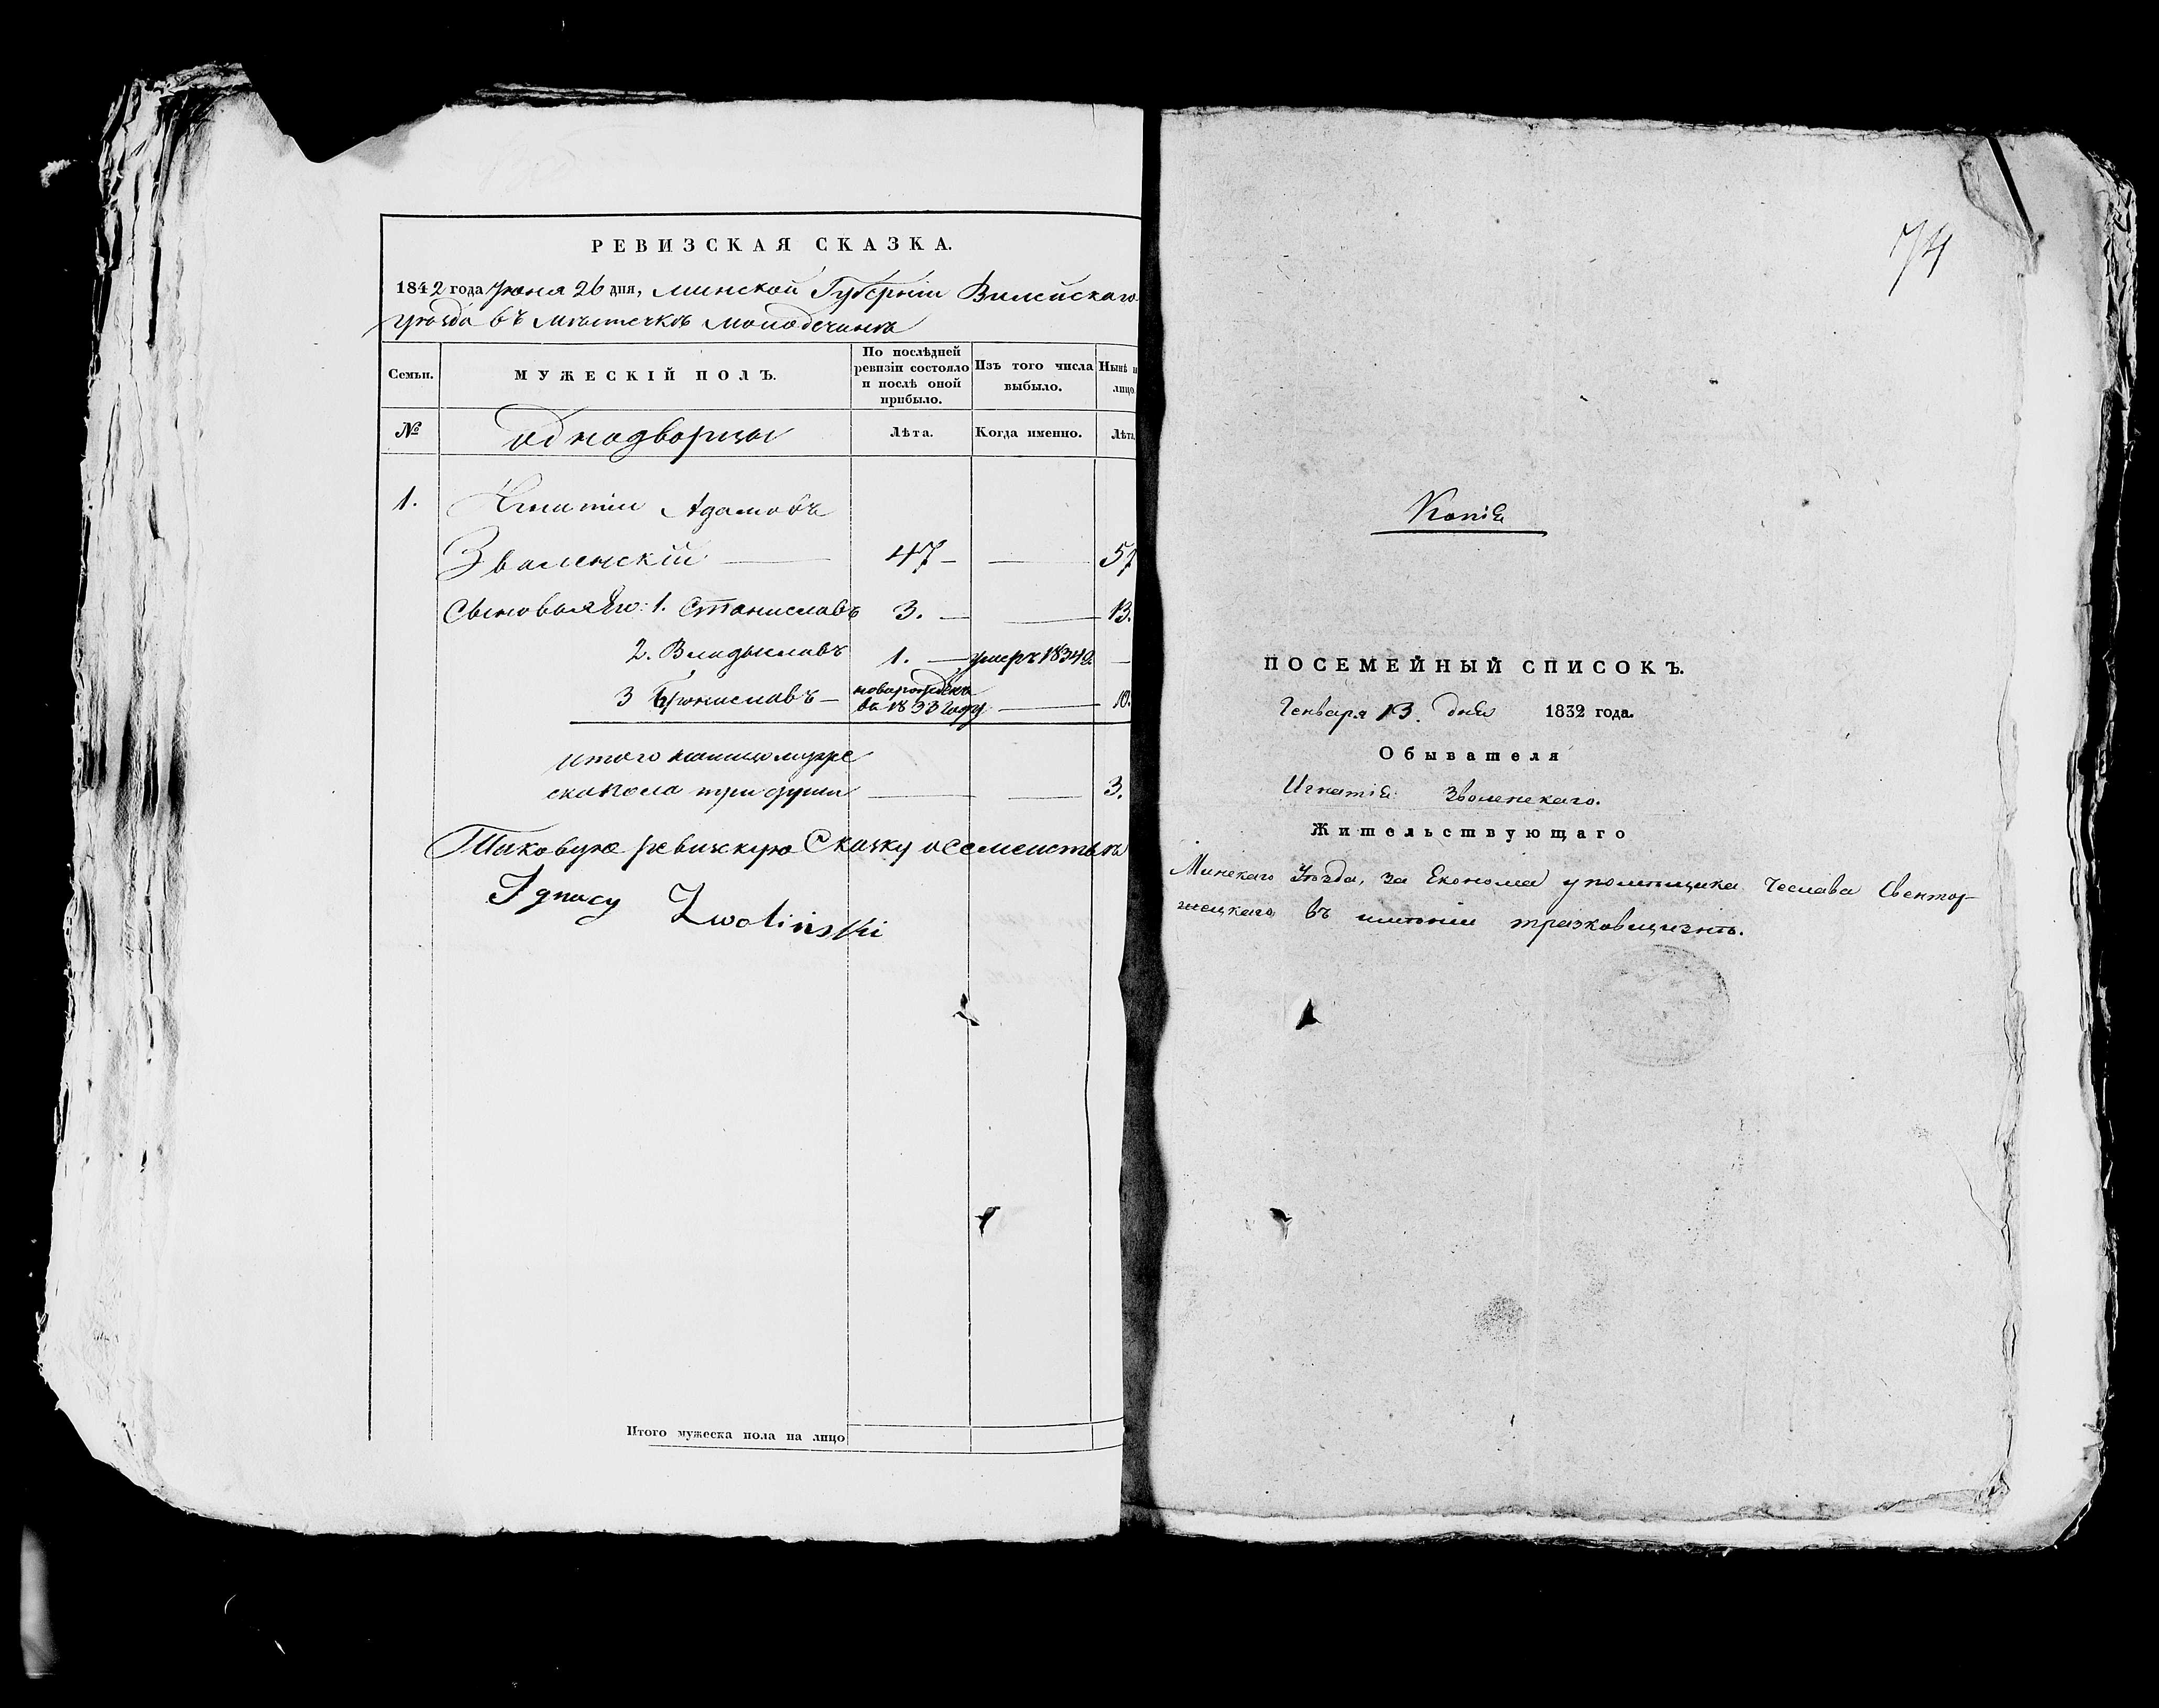 РЕВИЗСКАЯ СКАЗКА.
1842 года Июня 26 дня, Минской Губерніи Вилейскаго
уѣзда въ мѣстечкѣ Молодечнѣ
Семьи.
МУЖЕСКІЙ ПОЛЪ.
По послѣдней ревизіи состояло и послѣ оной прибыло.
Изъ того числа выбыло.
Нынѣ
лицо
№
однодворцы
Лѣта.
Когда именно.
Лѣта
1. Игнатіи Адамовъ
Зваленскій 47 57
Сыновья Его: 1. Станиславъ 3. 13.
2. Владыславъ 1. умеръ 1834
3 Брониславъ новорожденъ въ 1833 году 10.
итого налицо муже
ска пола три души 3.
Таковую ревизскую Сказку о семействѣ
Ignacy Zwolinski
Итого мужеска пола на лицо
74
Копіе
ПОСЕМЕЙНЫЙ СПИСОКЪ.
Генваря 13. дня 1832 года.
Обывателя
Игнатіе Зволенскаго.
Жительствующаго
Минскаго Уѣзда, за Економа у помѣщика Чеслава Свентор-
жецкаго въ имѣніи